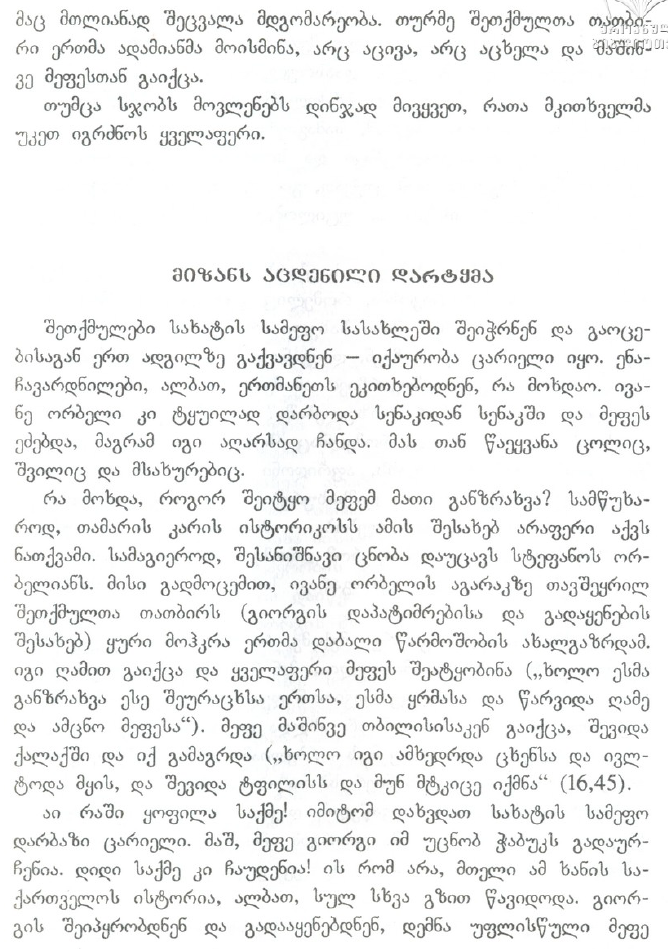 მაც მთლიანად შეცვალა მდგომარეობა. თურმე შეთქმულთა თათბი-
რი ერთმა ადამიანმა მოისმინა, არც აცივა, არც აცხელა და მაშინ-
ვე მეფესთან გაიქცა.
თუმცა სჯობს მოვლენებს დინჯად მივყვეთ, რათა მკითხველმა
უკეთ იგრძნოს ყველაფერი.
მიზანს აცდენილი დარტყმა
შეთქმულები სახატის სამეფო სასახლეში შეიჭრნენ და გაოცე-
ბისაგან ერთ ადგილზე გაქვავდნენ — იქაურობა ცარიელი იყო. ენა-
ჩავარდნილები, ალბათ, ერთმანეთს ეკითხებოდნენ, რა მოხდაო. ივა-
ნე ორბელი კი ტყუილად დარბოდა სენაკიდან სენაკში და მეფეს
ეძებდა, მაგრამ იგი აღარსად ჩანდა. მას თან წაეყვანა ცოლიც,
შვილიც და მსახურებიც.
რა მოხდა, როგორ შეიტყო მეფემ მათი განზრახვა? სამწუხა-
როდ, თამარის კარის ისტორიკოსს ამის შესახებ არაფერი აქვს
ნათქვამი. სამაგიეროდ, შესანიშნავი ცნობა დაუცავს სტეფანოს ორ-
ბელიანს. მისი გადმოცემით, ივანე ორბელის აგარაკზე თავშეყრილ
შეთქმულთა თათბირს (გიორგის დაპატიმრებისა და გადაყენების
შესახებ) ყური მოჰკრა ერთმა დაბალი წარმოშობის ახალგაზრდამ.
იგი ღამით გაიქცა და ყველაფერი მეფეს შეატყობინა („ხოლო ესმა
განზრახვა ესე შეურაცხსა ერთსა, ესმა ყრმასა და წარვიდა ღამე
და ამცნო მეფესა“). მეფე მაშინვე თბილისისაკენ გაიქცა, შევიდა
ქალაქში და იქ გამაგრდა („ხოლო იგი ამხედრდა ცხენსა და ივლ-
ტოდა მყის, და შევიდა ტფილისს და მუნ მტკიცე იქმნა“ (16,45).
აი რაში ყოფილა საქმე! იმიტომ დახვდათ სახატის სამეფო
დარბაზი ცარიელი. მაშ, მეფე გიორგი იმ უცნობ ჭაბუკს გადაურ-
ჩენია. დიდი საქმე კი ჩაუდენია! ის რომ არა, მთელი ამ ხანის სა-
ქართველოს ისტორია, ალბათ, სულ სხვა გზით წავიდოდა. გიორ-
გის შეიპყრობდნენ და გადააყენებდნენ, დემნა უფლისწული მეფე